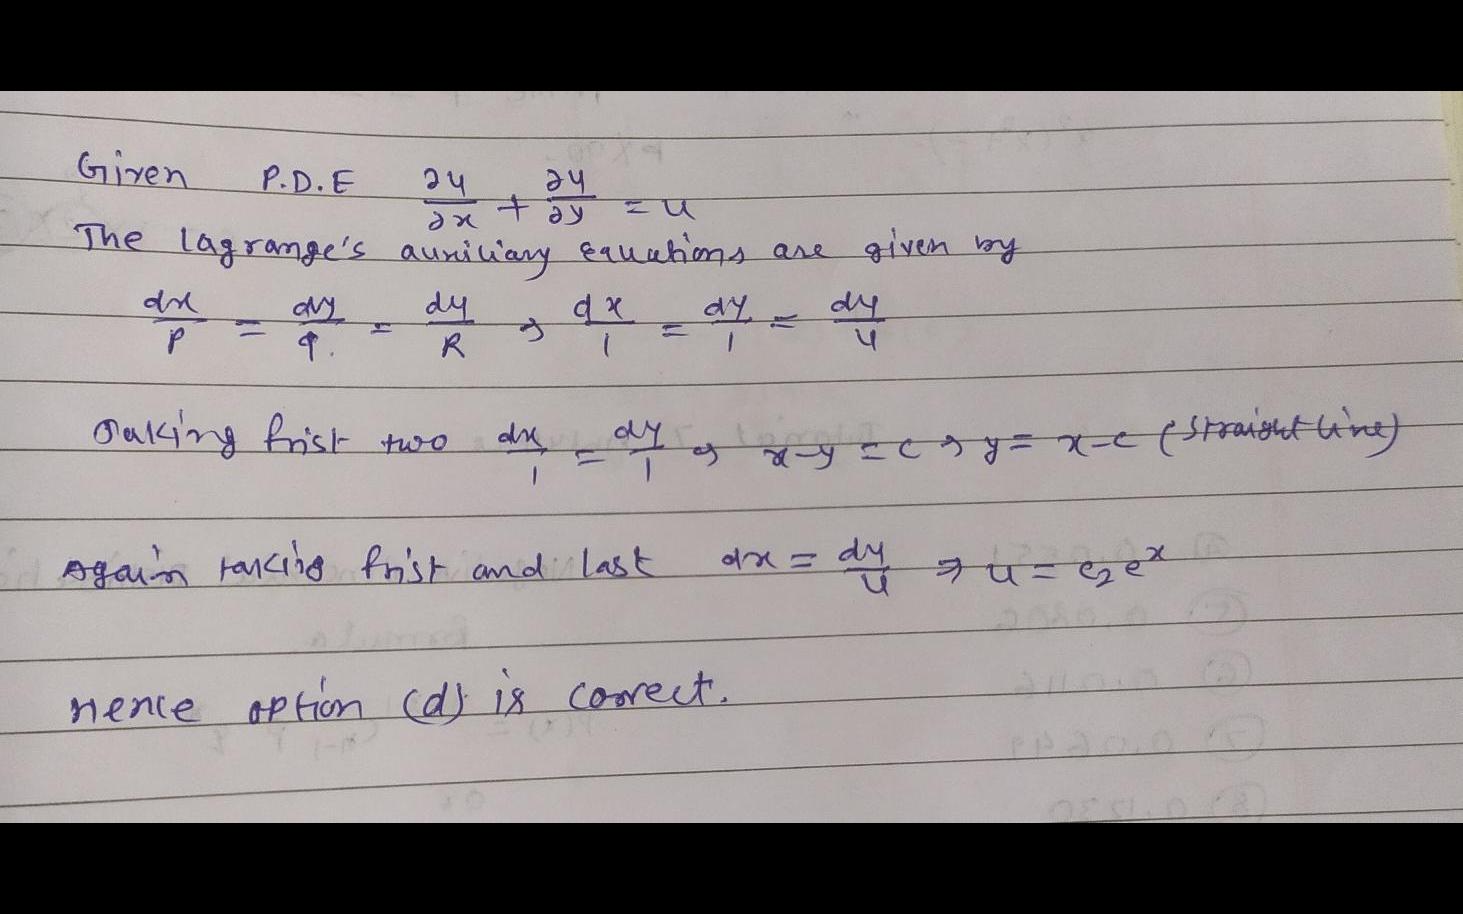 Given P.D.E ∂u/∂x + ∂u/∂y = u
The lagrange's auxiliary equations are given by
dx/P = dy/q. = du/R ⇒ dx/1 = dy/1 = du/u
Taking frist two dx/1 = dy/1 ⇒ x-y = c ⇒ y = x-c (straight line)
Again taking frist and last dx = du/u ⇒ u = c₂eˣ
Hence option (d) is correct.